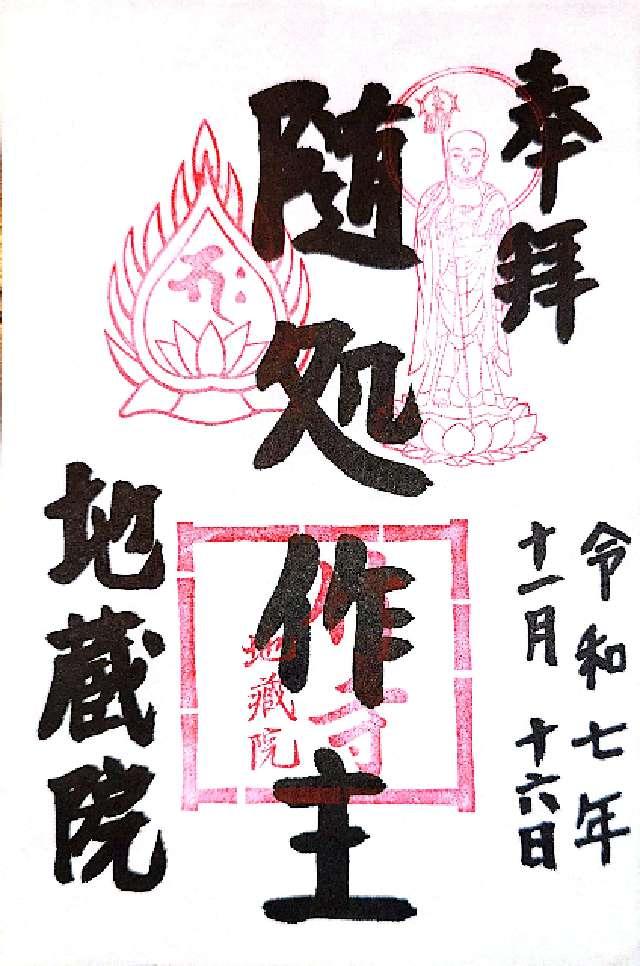 奉拝
令和七年
十一月十六日
随処作主
竹寺
地蔵院
地蔵院